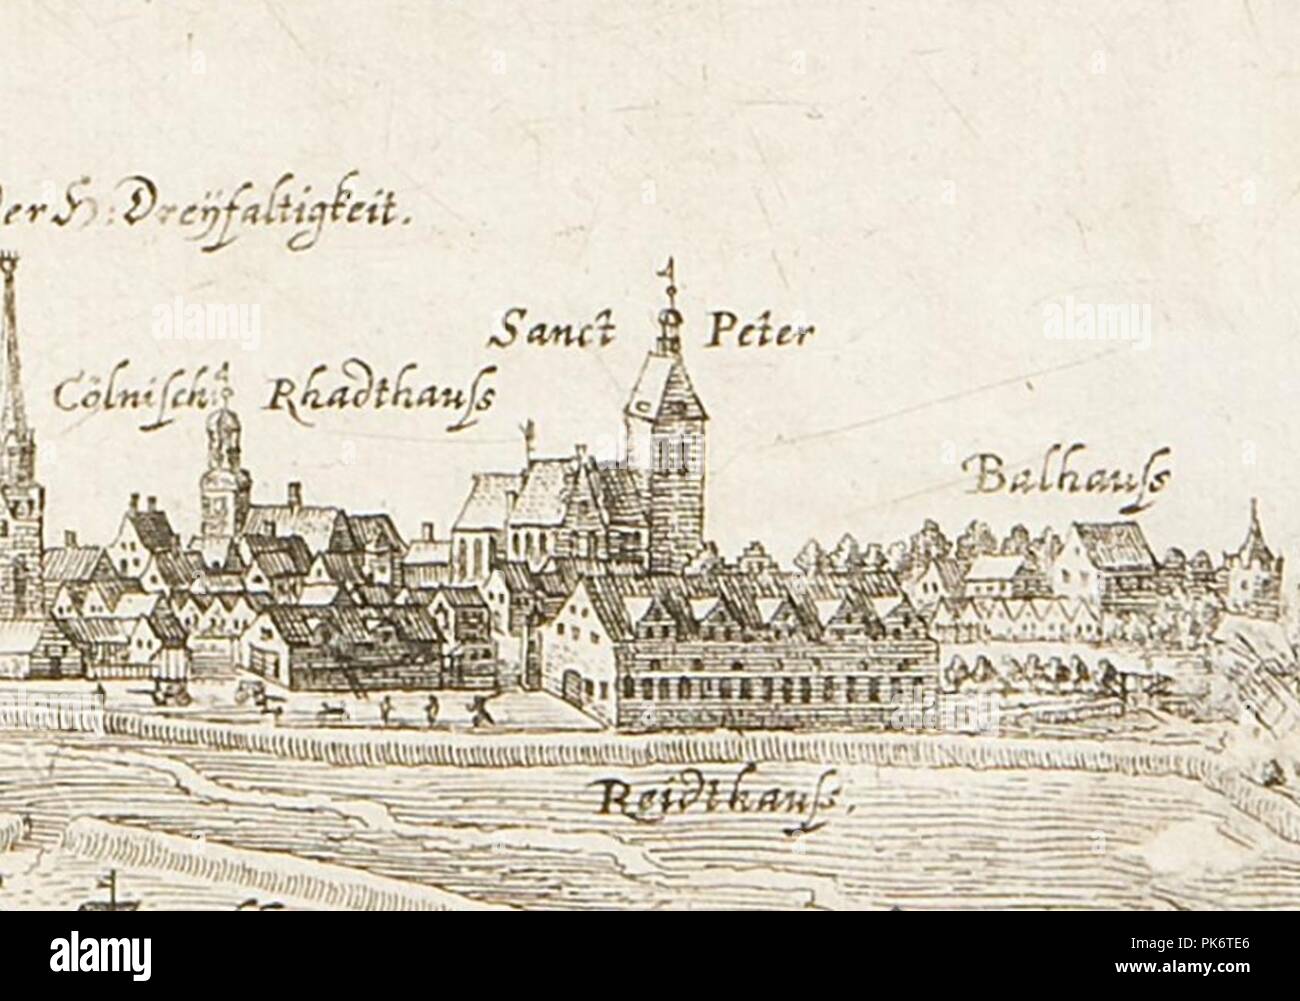 der H: Dreÿfaltigkeit.
Sanct Peter
Cölnisch Rhadthauſs
Balhauſs
Reidthauſs.
alamy
Image ID: PK6TE6
www.alamy.com